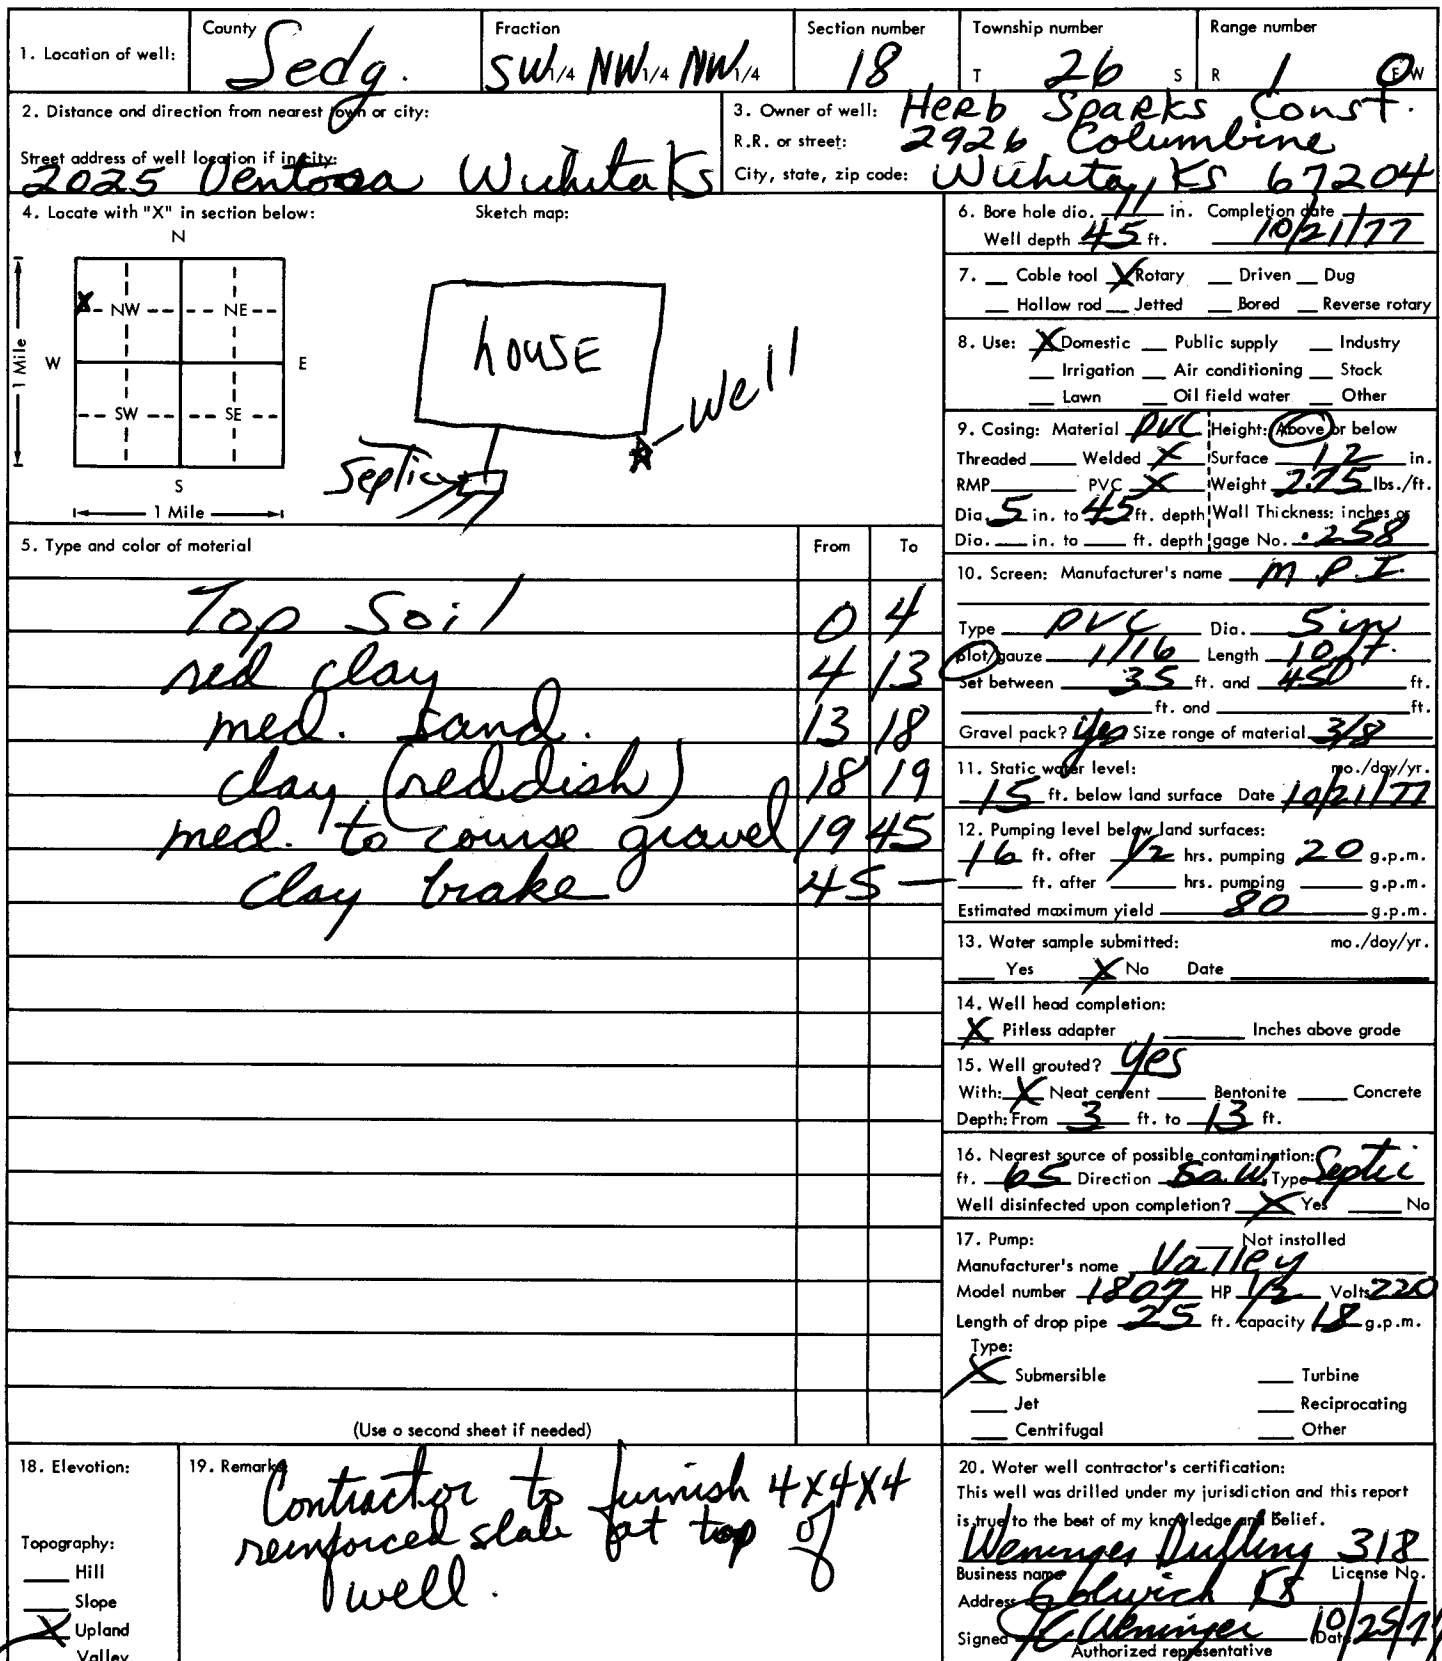 1. Location of well: County Sedg. Fraction SW 1/4 NW 1/4 NW 1/4 Section number 18 Township number T 26 S Range number R 1 E/W
2. Distance and direction from nearest town or city:
Street address of well location if in city:
2025 Ventosa Wichita Ks
3. Owner of well: Herb Sparks Const.
R.R. or street: 2926 Columbine
City, state, zip code: Wichita, Ks 67204
4. Locate with "X" in section below: Sketch map:
N
X
NW NE
W E
SW SE
S
1 Mile
1 Mile
house
well
Septic
5. Type and color of material From To
Top Soil 0 4
red clay 4 13
med. sand. 13 18
clay (reddish) 18 19
med. to course gravel 19 45
clay brake 45 —
(Use a second sheet if needed)
6. Bore hole dia. 11 in. Completion date
Well depth 45 ft. 10/21/77
7. __ Cable tool X Rotary __ Driven __ Dug
__ Hollow rod __ Jetted __ Bored __ Reverse rotary
8. Use: X Domestic __ Public supply __ Industry
__ Irrigation __ Air conditioning __ Stock
__ Lawn __ Oil field water __ Other
9. Casing: Material PVC Height: Above or below
Threaded __ Welded X Surface 12 in.
RMP __ PVC X Weight 2.75 lbs./ft.
Dia. 5 in. to 45 ft. depth Wall Thickness: inches or
Dia. __ in. to __ ft. depth gage No. .258
10. Screen: Manufacturer's name M.P.I.
Type PVC Dia. 5 in
Slot/gauze 1/16 Length 10 ft.
Set between 35 ft. and 45 ft.
__ ft. and __ ft.
Gravel pack? Yes Size range of material 3/8
11. Static water level: mo./day/yr.
15 ft. below land surface Date 10/21/77
12. Pumping level below land surfaces:
16 ft. after 1/2 hrs. pumping 20 g.p.m.
__ ft. after __ hrs. pumping __ g.p.m.
Estimated maximum yield 80 g.p.m.
13. Water sample submitted: mo./day/yr.
__ Yes X No Date
14. Well head completion:
X Pitless adapter __ Inches above grade
15. Well grouted? Yes
With: X Neat cement __ Bentonite __ Concrete
Depth: From 3 ft. to 13 ft.
16. Nearest source of possible contamination:
ft. 65 Direction So.W. Type Septic
Well disinfected upon completion? X Yes __ No
17. Pump: __ Not installed
Manufacturer's name Valley
Model number 1807 HP 1/2 Volts 220
Length of drop pipe 25 ft. capacity 18 g.p.m.
Type:
X Submersible __ Turbine
__ Jet __ Reciprocating
__ Centrifugal __ Other
18. Elevation:
Topography:
__ Hill
__ Slope
X Upland
Valley
19. Remarks Contractor to furnish 4x4x4
reinforced slab at top of
well.
20. Water well contractor's certification:
This well was drilled under my jurisdiction and this report
is true to the best of my knowledge and belief.
Weninger Drilling 318
Business name License No.
Address Colwich Ks
Signed JC Weninger Date 10/25/77
Authorized representative